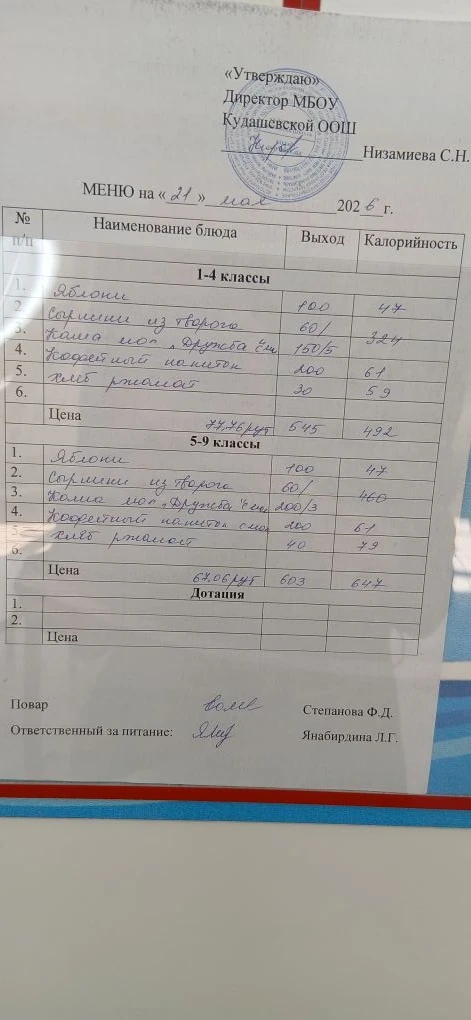 «Утверждаю»
Директор МБОУ
Кудашевской ООШ
Низамиева С.Н.
МЕНЮ на « 21 » мая 2026 г.
№ п/п Наименование блюда Выход Калорийность
1-4 классы
1. Яблоки 100 47
2. Сырники из творога 60/ 324
3. Каша мол "Дружба" с м 150/5
4. Кофейный напиток 200 61
5. хлеб ржаной 30 59
6.
Цена 77,76 руб 545 492
5-9 классы
1. Яблоки 100 47
2. Сырники из творога 60/ 460
3. Каша мол "Дружба" с м 200/3
4. Кофейный напиток с мол 200 61
5. хлеб ржаной 40 79
6.
Цена 67,06 руб 603 647
Дотация
1.
2.
Цена
Повар Степанова Ф.Д.
Ответственный за питание: Янабирдина Л.Г.